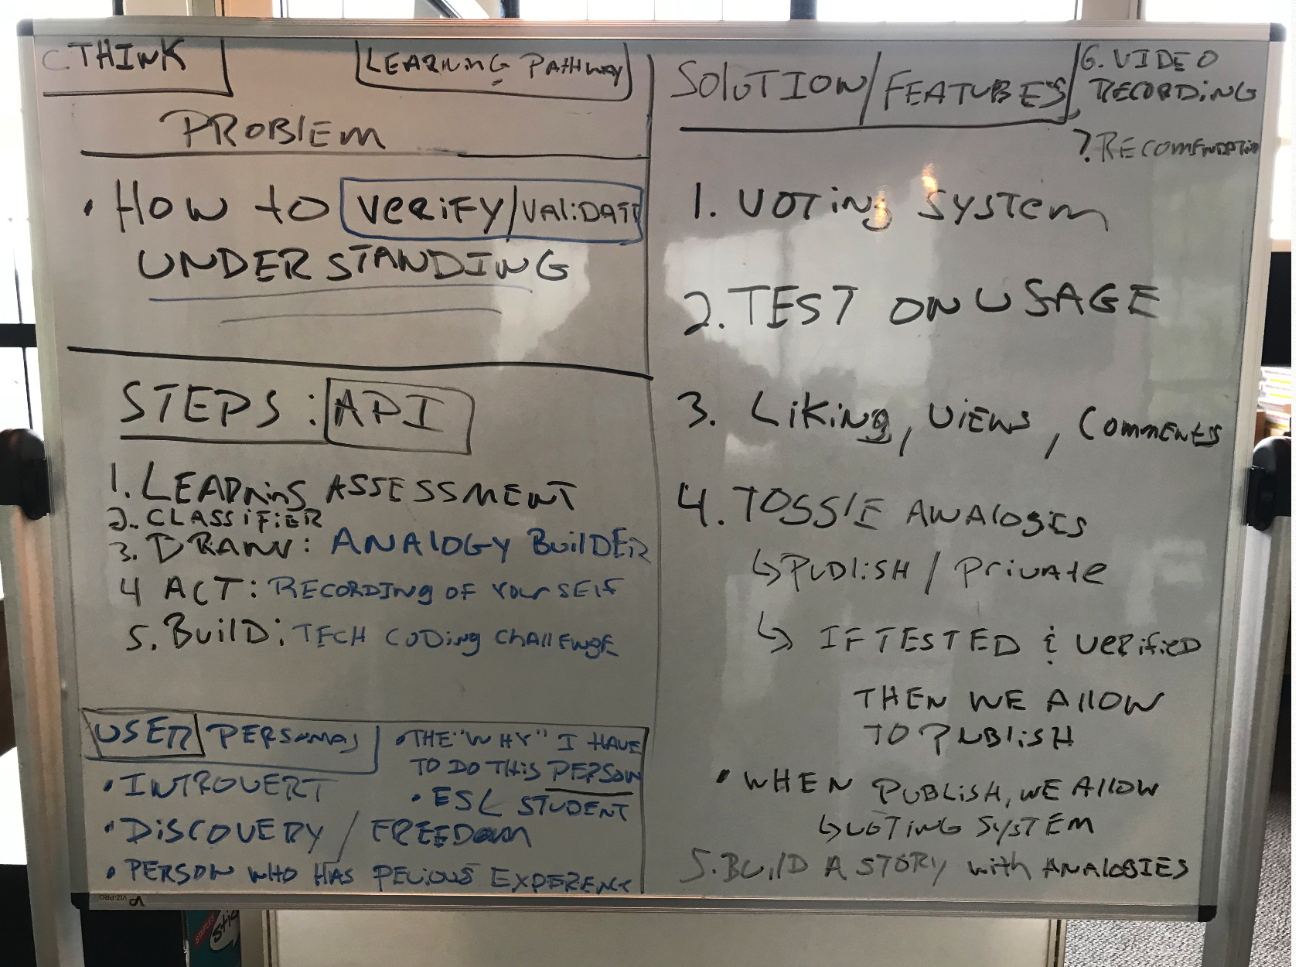 C THINK
LEARNING PATHWAY
PROBLEM
• HOW to VERIFY/VALIDATE
UNDERSTANDING
STEPS: API
1. LEARNING ASSESSMENT
2. CLASSIFIER
3. DRAW: ANALOGY BUILDER
4 ACT: RECORDING OF YOURSELF
5. BUILD: TECH CODING CHALLENGE
USER PERSONAS
• INTROVERT
• DISCOVERY / FREEDOM
• PERSON WHO HAS PEVIOUS EXPERENCE
• THE "WHY" I HAVE
TO DO THIS PERSON
• ESL STUDENT
SOLUTION/FEATURES
6. VIDEO
RECORDING
7. RECOMENDATION
1. VOTING SYSTEM
2. TEST ON USAGE
3. LIKING, VIEWS, COMMENTS
4. TOGGLE ANALOGIES
↳ PUBLISH / PRIVATE
↳ IF TESTED & VERIFIED
THEN WE ALLOW
TO PUBLISH
• WHEN PUBLISH, WE ALLOW
↳ VOTING SYSTEM
5. BUILD A STORY with ANALOGIES